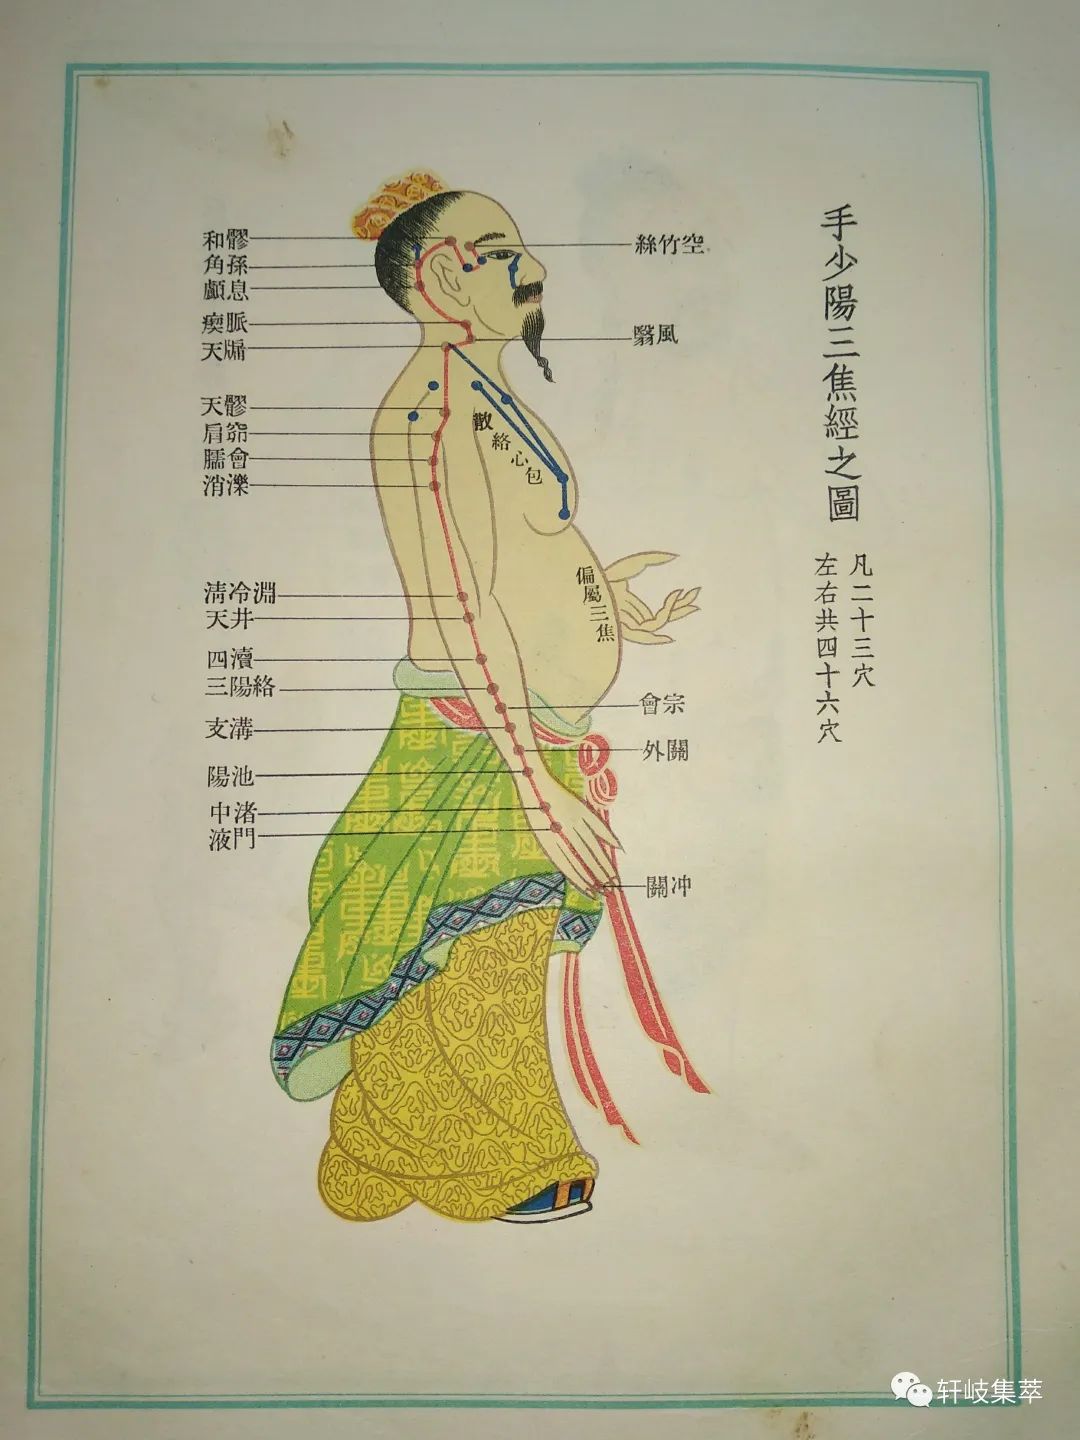 手少陽三焦經之圖
凡二十三穴
左右共四十六穴
和髎
角孫
顱息
瘈脈
天牖
天髎
肩窌
臑會
消濼
清冷淵
天井
四瀆
三陽絡
支溝
陽池
中渚
液門
絲竹空
翳風
散絡心包
偏屬三焦
會宗
外關
關冲
轩岐集萃